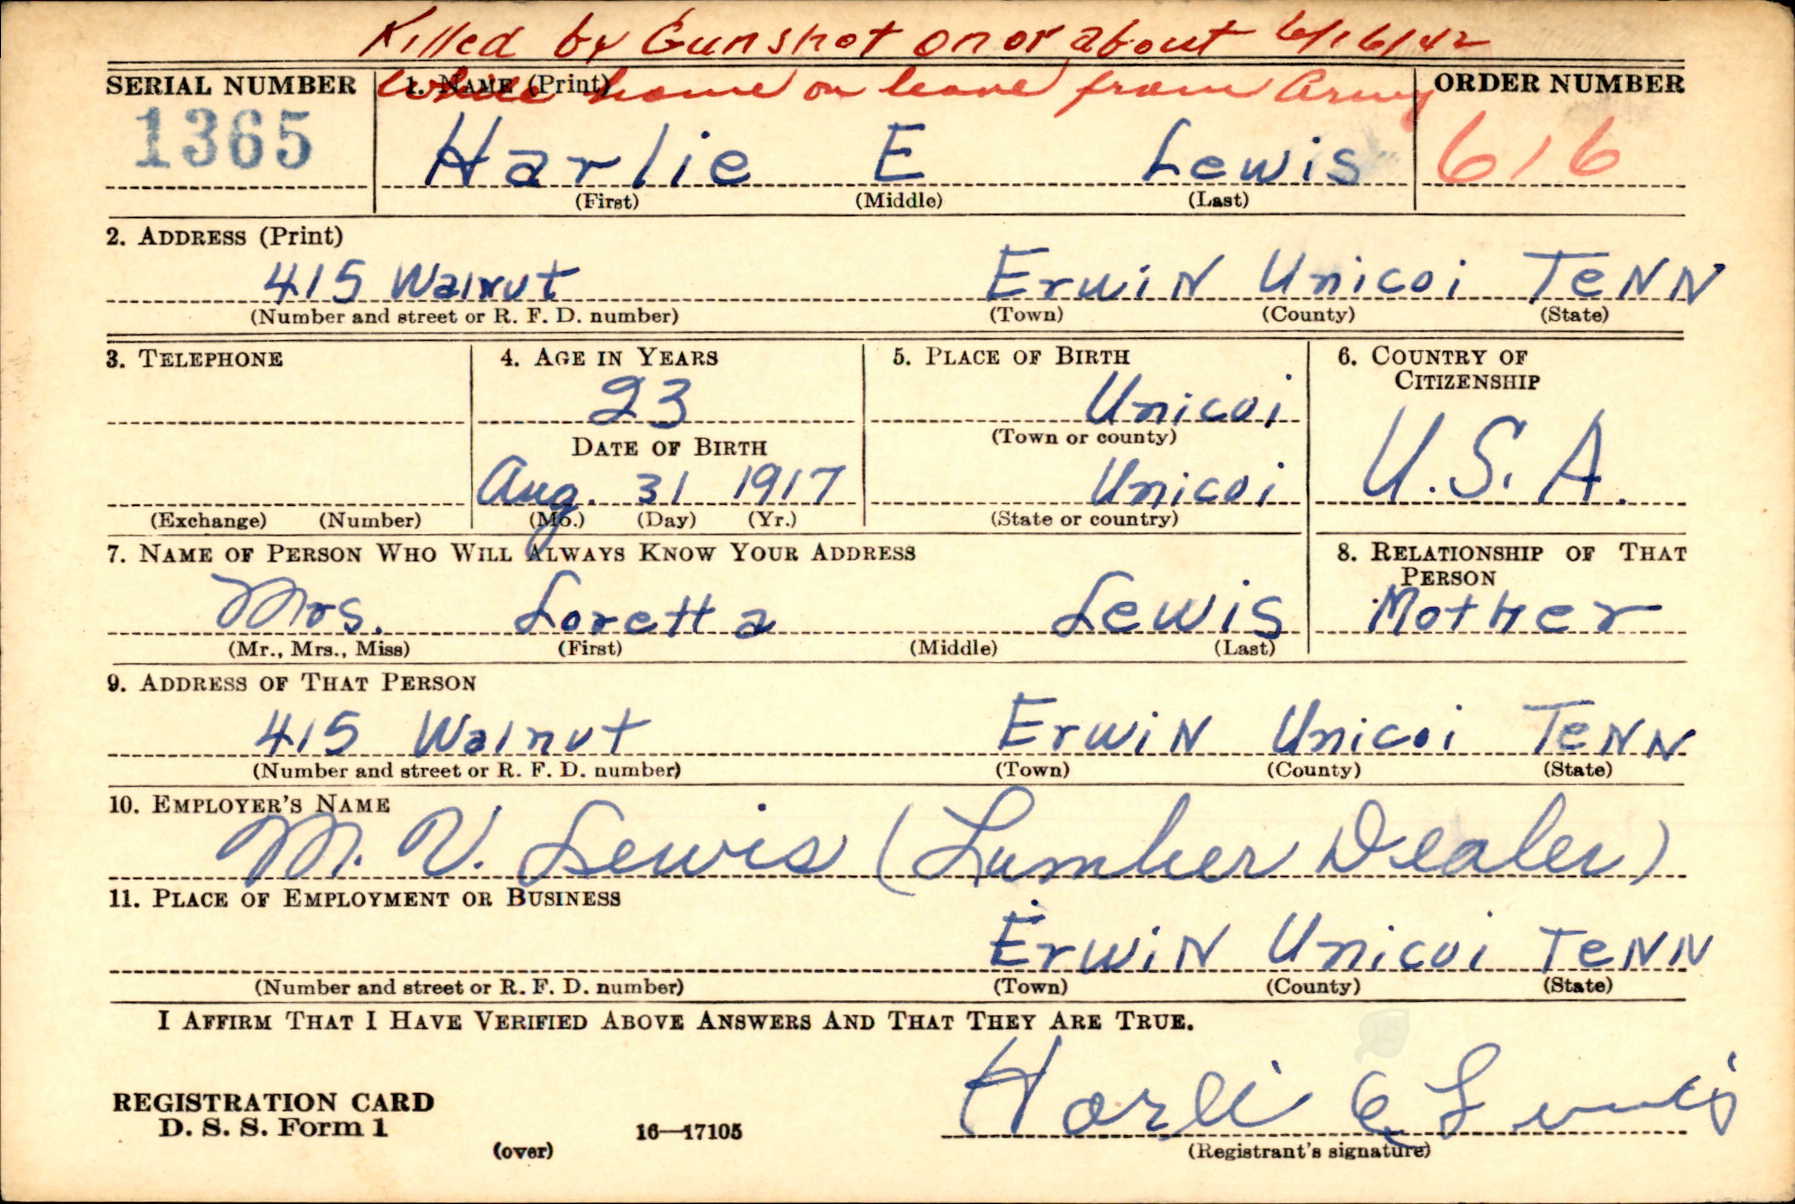 Killed by Gunshot on or about 6/16/42
while home on leave from Army
SERIAL NUMBER 1. NAME (Print) ORDER NUMBER
1365 Harlie E Lewis 616
(First) (Middle) (Last)
2. ADDRESS (Print)
415 Walnut Erwin Unicoi Tenn
(Number and street or R. F. D. number) (Town) (County) (State)
3. TELEPHONE 4. AGE IN YEARS 5. PLACE OF BIRTH 6. COUNTRY OF CITIZENSHIP
23 Unicoi
DATE OF BIRTH (Town or county) U.S.A.
Aug. 31 1917 Unicoi
(Exchange) (Number) (Mo.) (Day) (Yr.) (State or country)
7. NAME OF PERSON WHO WILL ALWAYS KNOW YOUR ADDRESS 8. RELATIONSHIP OF THAT PERSON
Mrs. Loretta Lewis Mother
(Mr., Mrs., Miss) (First) (Middle) (Last)
9. ADDRESS OF THAT PERSON
415 Walnut Erwin Unicoi Tenn
(Number and street or R. F. D. number) (Town) (County) (State)
10. EMPLOYER'S NAME
M. V. Lewis (Lumber Dealer)
11. PLACE OF EMPLOYMENT OR BUSINESS
Erwin Unicoi Tenn
(Number and street or R. F. D. number) (Town) (County) (State)
I AFFIRM THAT I HAVE VERIFIED ABOVE ANSWERS AND THAT THEY ARE TRUE.
Harlie E Lewis
REGISTRATION CARD
D. S. S. Form 1 16—17105
(over) (Registrant's signature)